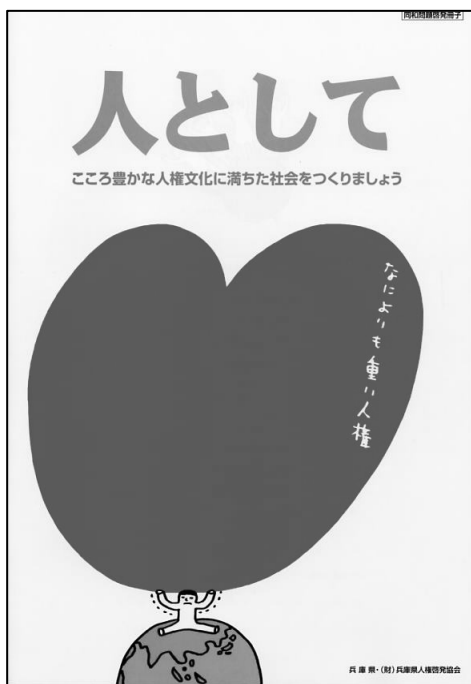 同和問題啓発冊子
人として
こころ豊かな人権文化に満ちた社会をつくりましょう
なによりも重い人権
兵庫県・(財)兵庫県人権啓発協会